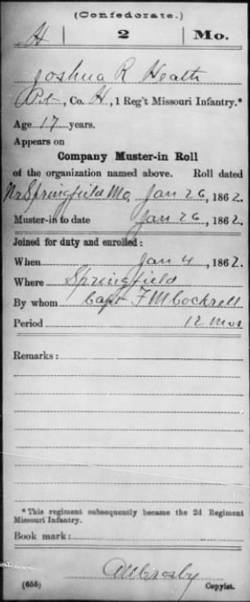 (Confederate.)
H | 2 | Mo.
Joshua R Heath
Pvt, Co. H, 1 Reg't Missouri Infantry.*
Age 17 years.
Appears on
Company Muster-in Roll
of the organization named above. Roll dated
Nr Springfield Mo Jan 26, 1862.
Muster-in to date Jan 26, 1862.
Joined for duty and enrolled:
When Jan 4, 1862.
Where Springfield
By whom Capt F M Cockrell
Period 12 mos
Remarks:
*This regiment subsequently became the 2d Regiment
Missouri Infantry.
Book mark:
(656) Copyist.